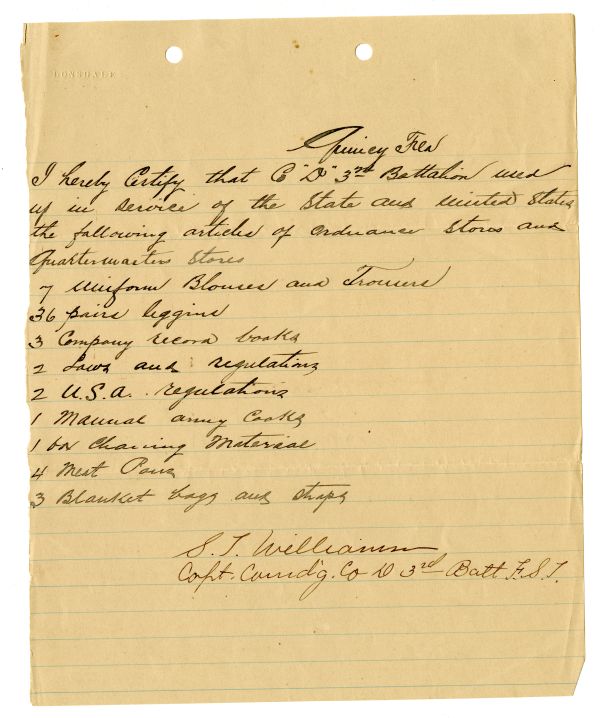 LONSDALE
Quincy Fla
I hereby Certify that C "D" 3rd Battalion used
up in service of the State and United States
the following articles of Ordnance Stores and
Quartermasters Stores
7 Uniform Blouses and Trousers
36 pairs leggins
3 Company record books
2 Laws and regulations
2 U.S.A. regulations
1 Manual army Cooks
1 box Cleaning Material
4 Meat Pans
3 Blanket bags and straps
S. T. Williams
Capt. Comd'g. Co D 3rd Batt. F.S.T.